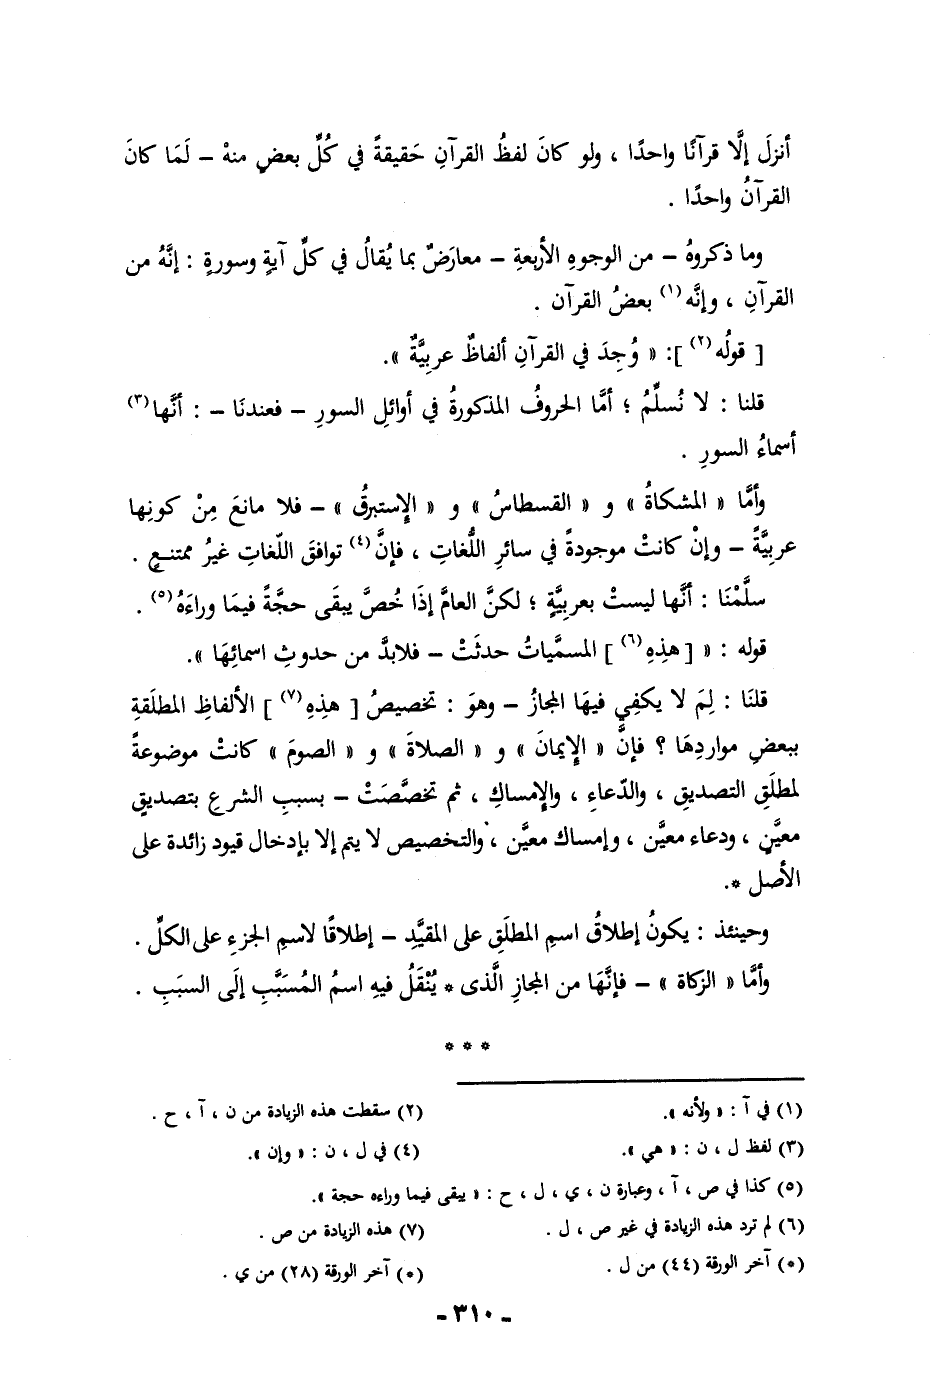 أنزلَ إلَّا قرآنًا واحدًا ، ولو كانَ لفظُ القرآنِ حَقيقةً في كُلِّ بعضٍ منهْ – لَمَا كانَ
القرآنُ واحدًا .
وما ذكروهُ – من الوجوهِ الأربعةِ – معارَضٌ بما يُقالُ في كلِّ آيةٍ وسورةٍ : إنَّهُ من
القرآنِ ، وإنَّه(١) بعضُ القرآن .
[ قولُه(٢) ]: « وُجِدَ في القرآنِ ألفاظٌ عربِيَّةٌ ».
قلنا : لا نُسلِّمُ ؛ أمَّا الحروفُ المذكورةُ في أوائلِ السورِ – فعندنَا – : أنَّها(٣)
أسماءُ السورِ .
وأمَّا « المشكاةُ » و « القسطاسُ » و « الإستبرقُ » – فلا مانعَ مِنْ كونِها
عربيَّةً – وإنْ كانتْ موجودةً في سائرِ اللُّغاتِ ، فإنَّ(٤) توافقَ اللّغاتِ غيرُ ممتنعٍ .
سلَّمْنَا : أنَّها ليستْ بعربيَّةٍ ؛ لكنَّ العامَّ إذَا خُصَّ يبقَى حجَّةً فيمَا وراءَهُ(٥) .
قوله : « [ هذِهِ(٦) ] المسمَّياتُ حدثَتْ – فلابدَّ من حدوثِ اسمائِهَا ».
قلنَا : لِمَ لا يكفِي فيهَا المجازُ – وهوَ : تخصيصُ [ هذِهِ(٧) ] الألفاظِ المطلَقةِ
ببعضِ مواردِهَا ؟ فإنَّ « الإيمانَ » و « الصلاةَ » و « الصومَ » كانتْ موضوعةً
لمطلَقِ التصديقِ ، والدّعاءِ ، والإمساكِ ، ثم تخصَّصَتْ – بسببِ الشرعِ بتصديقٍ
معيَّنٍ ، ودعاء معيَّن ، وإمساك معيَّن ، والتخصيص لا يتم إلا بإدخال قيود زائدة على
الأصل *.
وحينئذ : يكونُ إطلاقُ اسمِ المطلَقِ على المقيَّدِ – إطلاقًا لاسمِ الجزءِ على الكلِّ .
وأمَّا « الزكاة » – فإنَّهَا من المجازِ الَّذى * يُنْقَلُ فيهِ اسمُ المُسَبَّبِ إلَى السبَبِ .
* * *
(١) في آ : « ولأنه ». (٢) سقطت هذه الزيادة من ن ، آ ، ح .
(٣) لفظ ل ، ن : « هي ». (٤) في ل ، ن : « وإن ».
(٥) كذا في ص ، آ ، وعبارة ن ، ي ، ل ، ح : « يبقى فيما وراءه حجة ».
(٦) لم ترد هذه الزيادة في غير ص ، ل . (٧) هذه الزيادة من ص .
(*) آخر الورقة (٤٤) من ل . (*) آخر الورقة (٢٨) من ي .
- ٣١٠ -